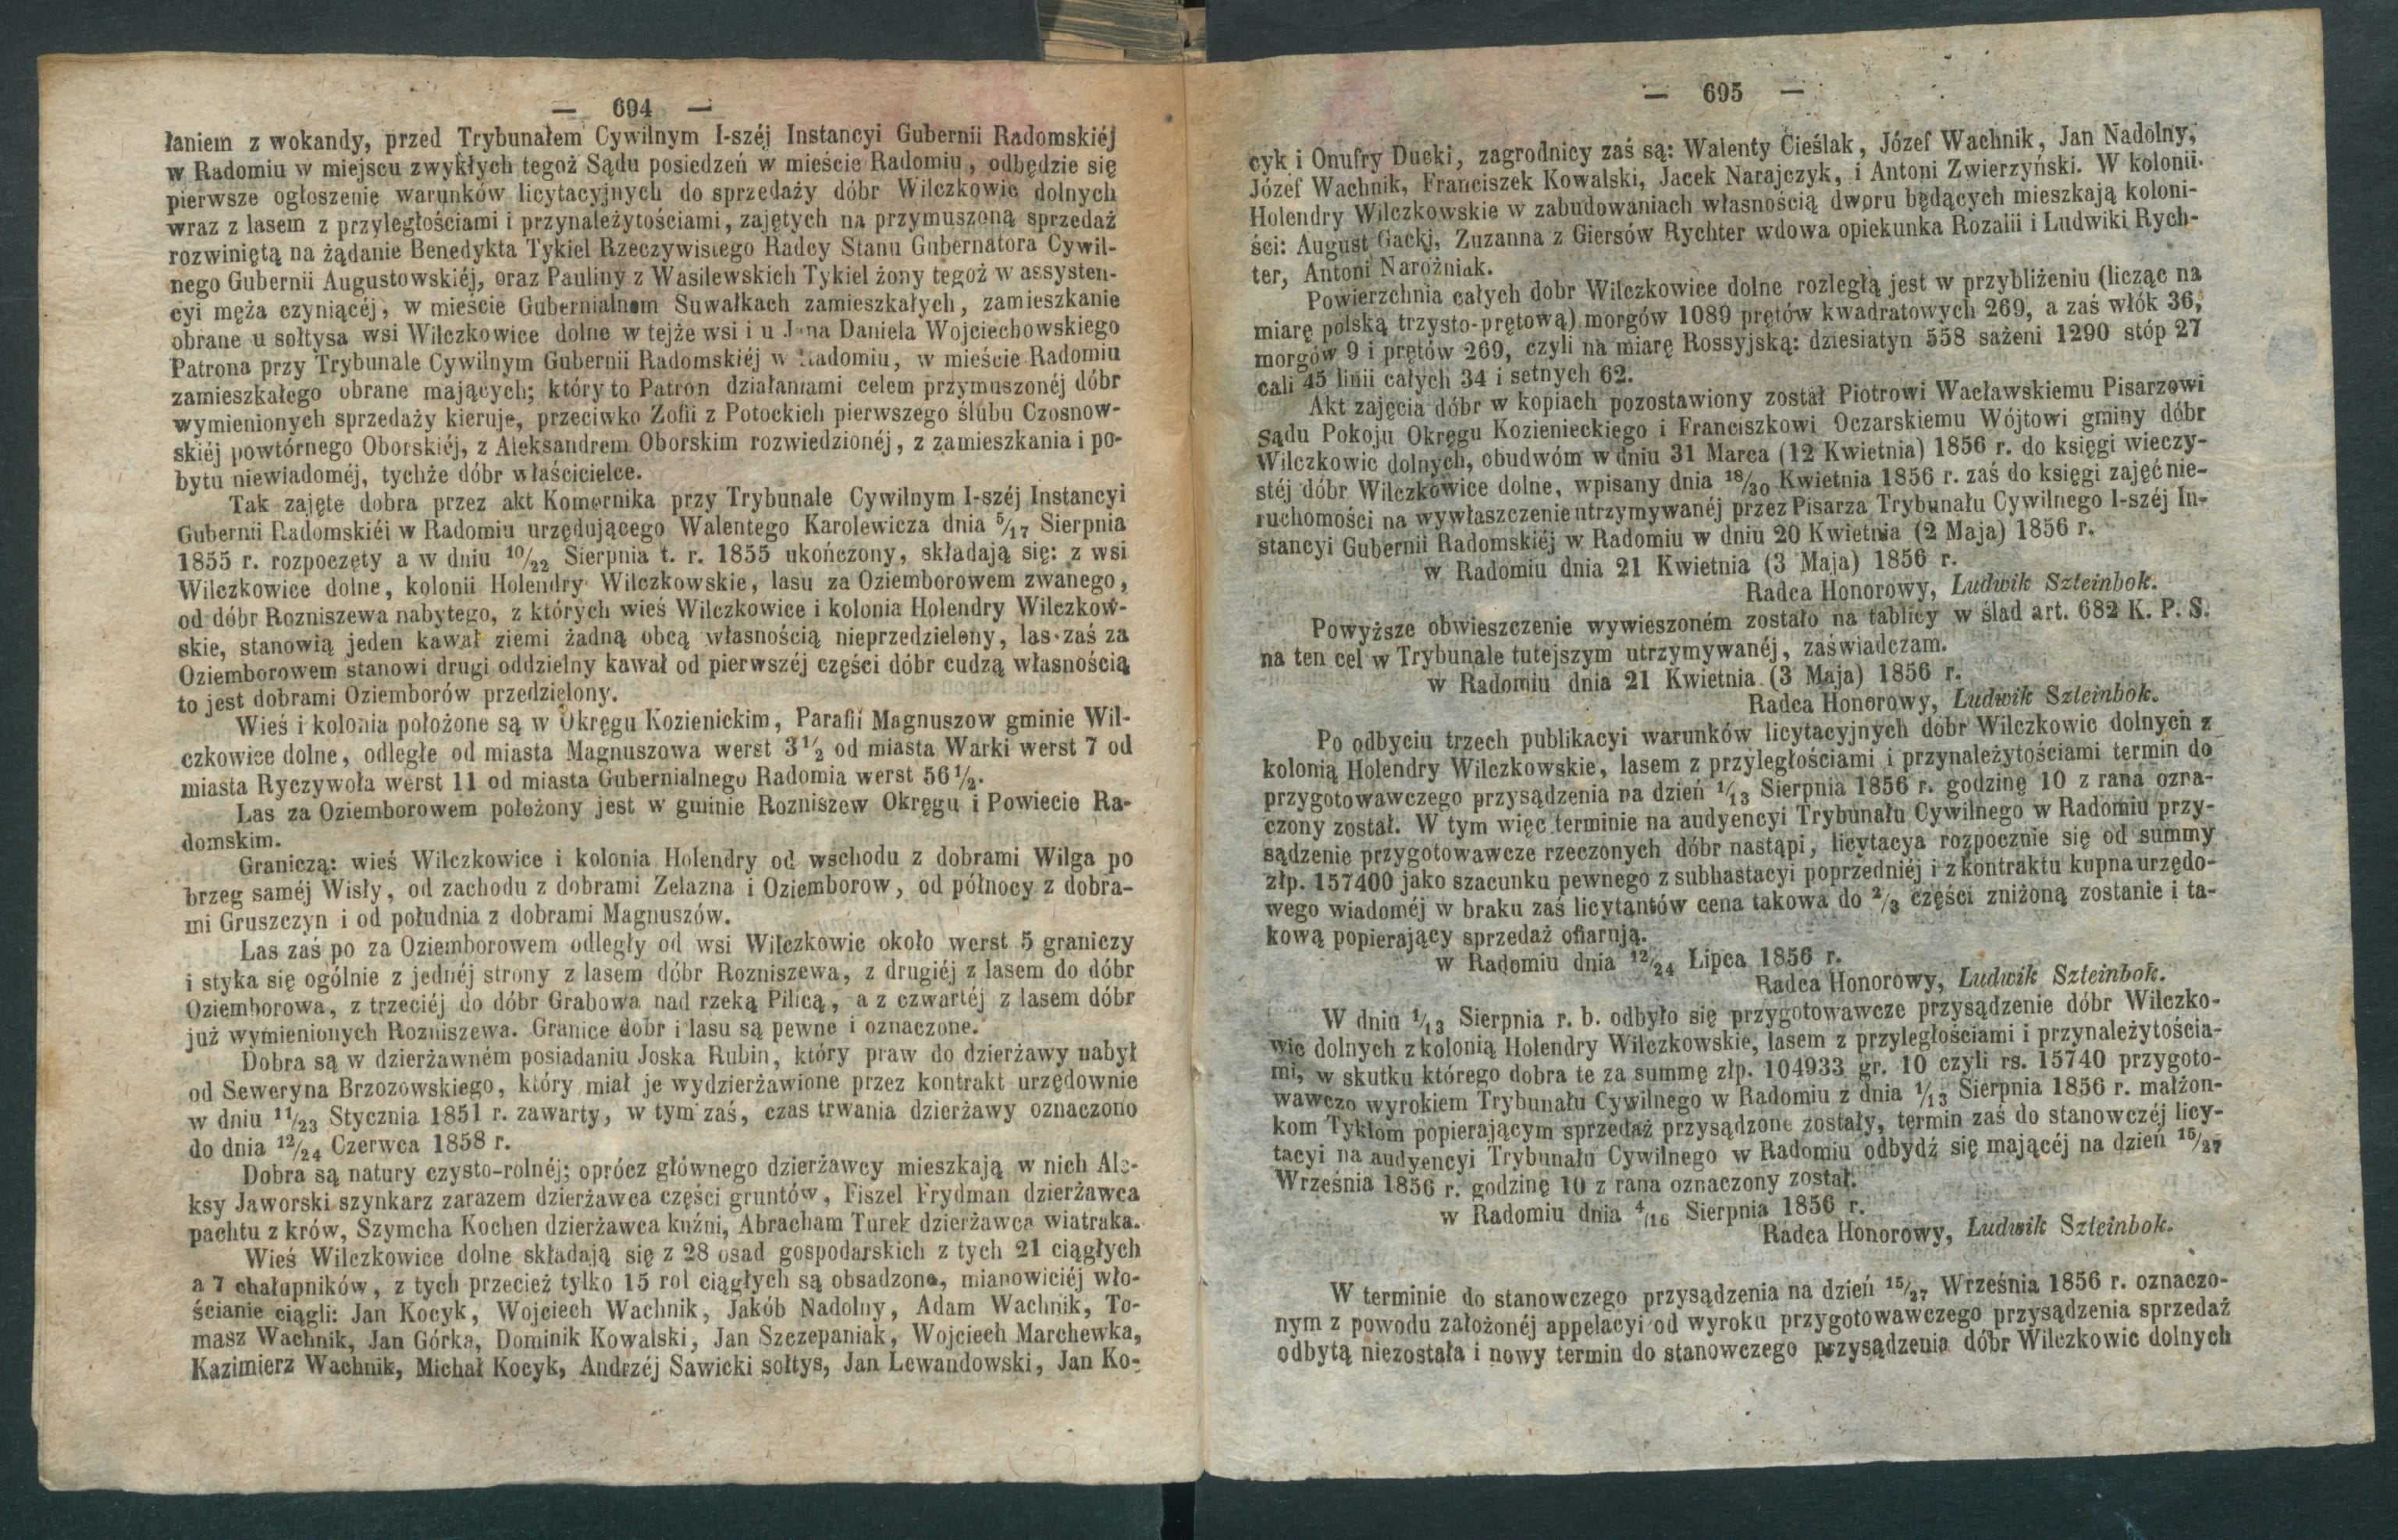 — 694 —
łaniem z wokandy, przed Trybunałem Cywilnym I-széj Instancyi Gubernii Radomskiéj
w Radomiu w miejscu zwykłych tegoż Sądu posiedzeń w mieście Radomiu, odbędzie się
pierwsze ogłoszenie warunków licytacyjnych do sprzedaży dóbr Wilczkowic dolnych
wraz z lasem z przyległościami i przynależytościami, zajętych na przymuszoną sprzedaż
rozwiniętą na żądanie Benedykta Tykiel Rzeczywistego Radcy Stanu Gubernatora Cywil-
nego Gubernii Augustowskiéj, oraz Pauliny z Wasilewskich Tykiel żony tegoż w assysten-
cyi męża czyniącéj, w mieście Gubernialnem Suwałkach zamieszkałych, zamieszkanie
obrane u sołtysa wsi Wilczkowice dolne w tejże wsi i u Jana Daniela Wojciechowskiego
Patrona przy Trybunale Cywilnym Gubernii Radomskiéj w Radomiu, w mieście Radomiu
zamieszkałego obrane mających; który to Patron działaniami celem przymuszonéj dóbr
wymienionych sprzedaży kieruje, przeciwko Zofii z Potockich pierwszego ślubu Czosnow-
skiéj powtórnego Oborskiéj, z Aleksandrem Oborskim rozwiedzionéj, z zamieszkania i po-
bytu niewiadoméj, tychże dóbr właścicielce.
Tak zajęte dobra przez akt Komornika przy Trybunale Cywilnym I-széj Instancyi
Gubernii Radomskiéi w Radomiu urzędującego Walentego Karolewicza dnia 5/17 Sierpnia
1855 r. rozpoczęty a w dniu 10/22 Sierpnia t. r. 1855 ukończony, składają się: z wsi
Wilczkowice dolne, kolonii Holendry Wilczkowskie, lasu za Oziemborowem zwanego,
od dóbr Rozniszewa nabytego, z których wieś Wilczkowice i kolonia Holendry Wilczkow-
skie, stanowią jeden kawał ziemi żadną obcą własnością nieprzedzielony, las zaś za
Oziemborowem stanowi drugi oddzielny kawał od pierwszéj części dóbr cudzą własnością
to jest dobrami Oziemborów przedzielony.
Wieś i kolonia położone są w Okręgu Kozienickim, Parafii Magnuszow gminie Wil-
czkowice dolne, odległe od miasta Magnuszowa werst 3½ od miasta Warki werst 7 od
miasta Ryczywoła werst 11 od miasta Gubernialnego Radomia werst 56½.
Las za Oziemborowem położony jest w gminie Rozniszew Okręgu i Powiecie Ra-
domskim.
Graniczą: wieś Wilczkowice i kolonia Holendry od wschodu z dobrami Wilga po
brzeg saméj Wisły, od zachodu z dobrami Zelazna i Oziemborow, od północy z dobra-
mi Gruszczyn i od południa z dobrami Magnuszów.
Las zaś po za Oziemborowem odległy od wsi Wilczkowic około werst 5 graniczy
i styka się ogólnie z jednéj strony z lasem dóbr Rozniszewa, z drugiéj z lasem do dóbr
Oziemborowa, z trzeciéj do dóbr Grabowa nad rzeką Pilicą, a z czwartéj z lasem dóbr
już wymienionych Rozniszewa. Granice dobr i lasu są pewne i oznaczone.
Dobra są w dzierżawném posiadaniu Joska Rubin, który praw do dzierżawy nabył
od Seweryna Brzozowskiego, który miał je wydzierżawione przez kontrakt urzędownie
w dniu 11/23 Stycznia 1851 r. zawarty, w tym zaś, czas trwania dzierżawy oznaczono
do dnia 12/24 Czerwca 1858 r.
Dobra są natury czysto-rolnéj; oprócz głównego dzierżawcy mieszkają w nich Ale-
ksy Jaworski szynkarz zarazem dzierżawca części gruntów, Fiszel Frydman dzierżawca
pachtu z krów, Szymcha Kochen dzierżawca kuźni, Abracham Turek dzierżawca wiatraka.
Wieś Wilczkowice dolne składają się z 28 osad gospodarskich z tych 21 ciągłych
a 7 chałupników, z tych przecież tylko 15 rol ciągłych są obsadzone, mianowiciéj wło-
ścianie ciągli: Jan Kocyk, Wojciech Wachnik, Jakób Nadolny, Adam Wachnik, To-
masz Wachnik, Jan Górka, Dominik Kowalski, Jan Szczepaniak, Wojciech Marchewka,
Kazimierz Wachnik, Michał Kocyk, Andrzéj Sawicki sołtys, Jan Lewandowski, Jan Ko-
— 695 —
cyk i Onufry Ducki, zagrodnicy zaś są: Walenty Cieślak, Józef Wachnik, Jan Nadolny,
Józef Wachnik, Franciszek Kowalski, Jacek Narajczyk, i Antoni Zwierzyński. W kolonii
Holendry Wilczkowskie w zabudowaniach własnością dworu będących mieszkają koloni-
ści: August Gacki, Zuzanna z Giersów Rychter wdowa opiekunka Rozalii i Ludwiki Rych-
ter, Antoni Narożniak.
Powierzchnia całych dobr Wilczkowice dolne rozległą jest w przybliżeniu (licząc na
miarę polską trzysto-prętową) morgów 1089 prętów kwadratowych 269, a zaś włók 36,
morgów 9 i prętów 269, czyli na miarę Rossyjską: dziesiatyn 558 sażeni 1290 stóp 27
cali 45 linii całych 34 i setnych 62.
Akt zajęcia dóbr w kopiach pozostawiony został Piotrowi Wacławskiemu Pisarzowi
Sądu Pokoju Okręgu Kozienieckiego i Franciszkowi Oczarskiemu Wójtowi gminy dóbr
Wilczkowic dolnych, obudwóm w dniu 31 Marca (12 Kwietnia) 1856 r. do księgi wieczy-
stéj dóbr Wilczkowice dolne, wpisany dnia 18/30 Kwietnia 1856 r. zaś do księgi zajęć nie-
ruchomości na wywłaszczenie utrzymywanéj przez Pisarza Trybunału Cywilnego I-széj In-
stancyi Gubernii Radomskiéj w Radomiu w dniu 20 Kwietnia (2 Maja) 1856 r.
w Radomiu dnia 21 Kwietnia (3 Maja) 1856 r.
Radca Honorowy, Ludwik Szteinbok.
Powyższe obwieszczenie wywieszoném zostało na tablicy w ślad art. 682 K. P. S.
na ten cel w Trybunale tutejszym utrzymywanéj, zaświadczam.
w Radomiu dnia 21 Kwietnia (3 Maja) 1856 r.
Radca Honorowy, Ludwik Szteinbok.
Po odbyciu trzech publikacyi warunków licytacyjnych dobr Wilczkowic dolnych z
kolonią Holendry Wilczkowskie, lasem z przyległościami i przynależytościami termin do
przygotowawczego przysądzenia na dzień 1/13 Sierpnia 1856 r. godzinę 10 z rana ozna-
czony został. W tym więc terminie na audyencyi Trybunału Cywilnego w Radomiu przy-
sądzenie przygotowawcze rzeczonych dóbr nastąpi, licytacya rozpocznie się od summy
złp. 157400 jako szacunku pewnego z subhastacyi poprzedniéj i z kontraktu kupna urzędo-
wego wiadoméj w braku zaś licytantów cena takowa do 2/3 części zniżoną zostanie i ta-
kową popierający sprzedaż ofiarują.
w Radomiu dnia 12/24 Lipca 1856 r.
Radca Honorowy, Ludwik Szteinbok.
W dniu 1/13 Sierpnia r. b. odbyło się przygotowawcze przysądzenie dóbr Wilczko-
wic dolnych z kolonią Holendry Wilczkowskie, lasem z przyległościami i przynależytościa-
mi, w skutku którego dobra te za summę złp. 104933 gr. 10 czyli rs. 15740 przygoto-
wawczo wyrokiem Trybunału Cywilnego w Radomiu z dnia 1/13 Sierpnia 1856 r. małżon-
kom Tyklom popierającym sprzedaż przysądzone zostały, termin zaś do stanowczéj licy-
tacyi na audyencyi Trybunału Cywilnego w Radomiu odbydź się mającéj na dzień 15/27
Września 1856 r. godzinę 10 z rana oznaczony został.
w Radomiu dnia 4/16 Sierpnia 1856 r.
Radca Honorowy, Ludwik Szteinbok.
W terminie do stanowczego przysądzenia na dzień 15/27 Września 1856 r. oznaczo-
nym z powodu założonéj appelacyi od wyroku przygotowawczego przysądzenia sprzedaż
odbytą niezostała i nowy termin do stanowczego przysądzenia dóbr Wilczkowic dolnych